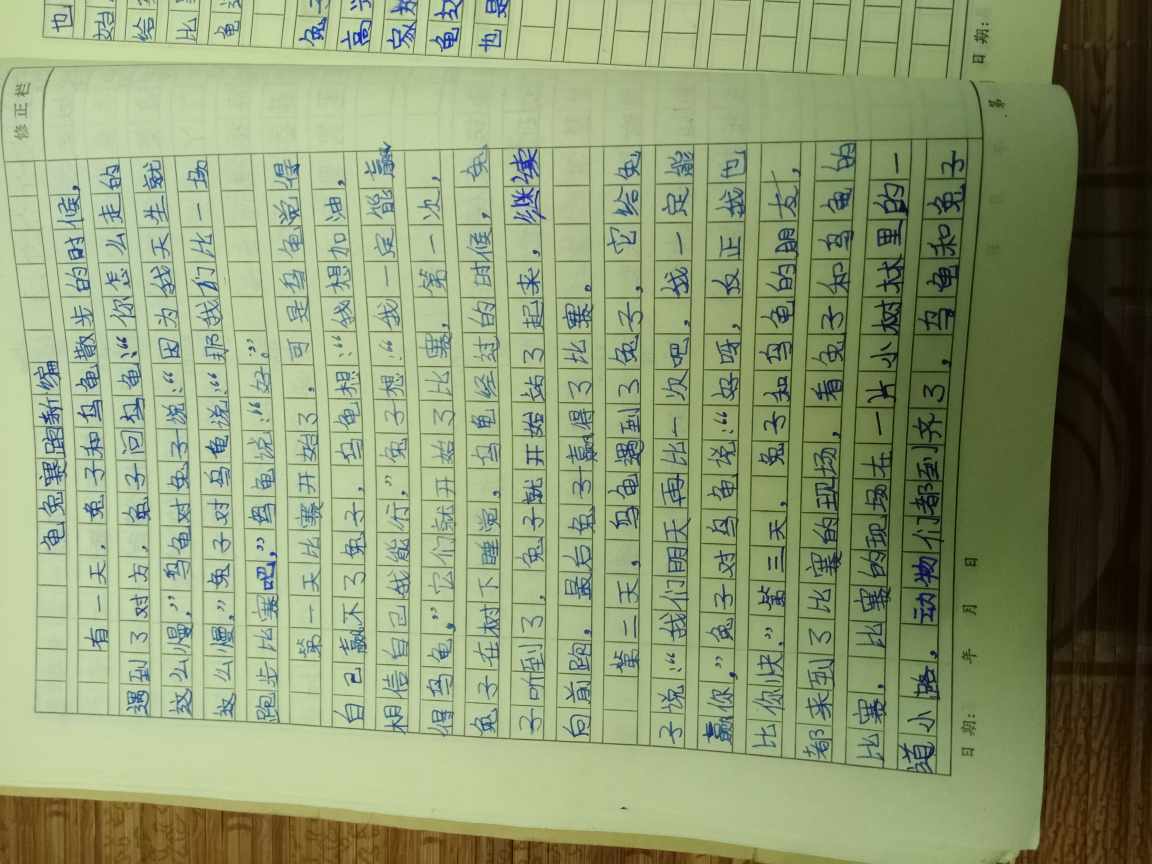 修正栏
龟兔赛跑新编
有一天，兔子和乌龟散步的时候，
遇到了对方，兔子问乌龟：“你怎么走的
这么慢，”乌龟对兔子说：“因为我天生就
这么慢，”兔子对乌龟说：“那我们比一场
跑步比赛吧，”乌龟说：“好。”
第一天比赛开始了，可是乌龟觉得
自己赢不了兔子，乌龟想：“我想加油，
相信自己我能行，”兔子想：“我一定能赢
得乌龟，”它们就开始了比赛，第一次，
兔子在树下睡觉，乌龟经过的时候，兔
子听到了，兔子就开始站了起来，继续
向前跑，最后兔子赢得了比赛。
第二天，乌龟遇到了兔子，它给兔
子说：“我们明天再比一次吧，我一定能
赢你，”兔子对乌龟说：“好呀，反正我也
比你快．”第三天，兔子和乌龟的朋友，
都来到了比赛的现场，看兔子和乌龟的
比赛，比赛的现场在一片小树林里的一
道小路，动物们都到齐了，乌龟和兔子
日期： 年 月 日
第
也
给
比
龟
兔子
高兴
家
龟
也是
日期：